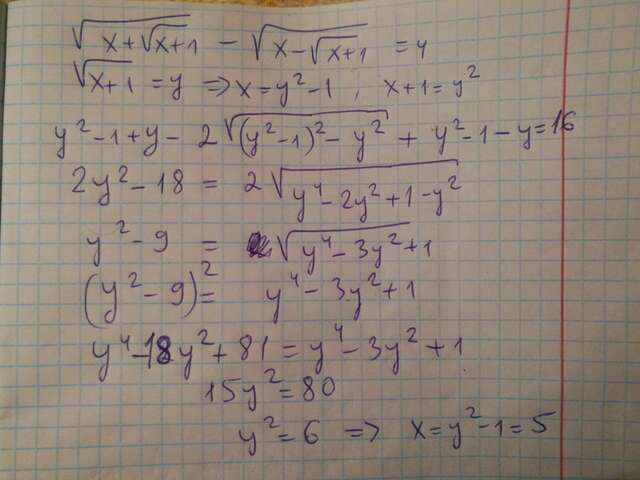 √(x+√(x+1)) - √(x-√(x+1)) = 4
√(x+1) = y ⇒ x = y² - 1, x+1 = y²
y² - 1 + y - 2√((y²-1)² - y²) + y² - 1 - y = 16
2y² - 18 = 2√(y⁴ - 2y² + 1 - y²)
y² - 9 = √(y⁴ - 3y² + 1)
(y² - 9)² = y⁴ - 3y² + 1
y⁴ - 18y² + 81 = y⁴ - 3y² + 1
15y² = 80
y² = 6 ⇒ x = y² - 1 = 5